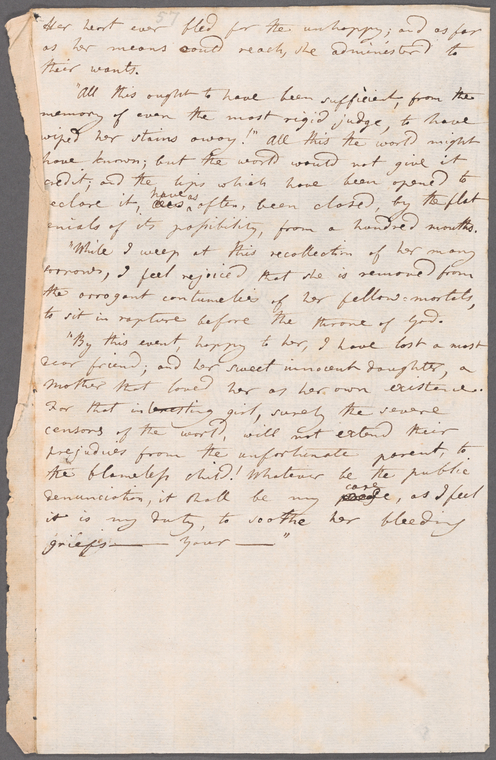 57
Her heart ever bled for the unhappy; and as far
as her means could reach, she administer'd to
their wants.
"All this ought to have been sufficient, from the
memory of even the most rigid judge, to have
wiped her stains away!" All this the world might
have known; but the world would not give it
credit; and the lips which have been opened to
declare it, have as often, been closed, by the flat
enials of its possibility, from a hundred mouths.
"While I weep at this recollection of her many
sorrows, I feel rejoiced that she is removed from
the arrogant contumelies of her fellow-mortals,
to sit in rapture before the throne of God.
"By this event happy to her, I have lost a most
dear friend; and her sweet innocent daughter, a
mother that loved her as her own existence.
For that interesting girl, surely the severe
censors of the world, will not extend their
prejudices from the unfortunate parent, to
the blameless child! Whatever be the public
denunciation, it shall be my care, as I feel
it is my duty, to soothe her bleeding
griefs—— Your ——"